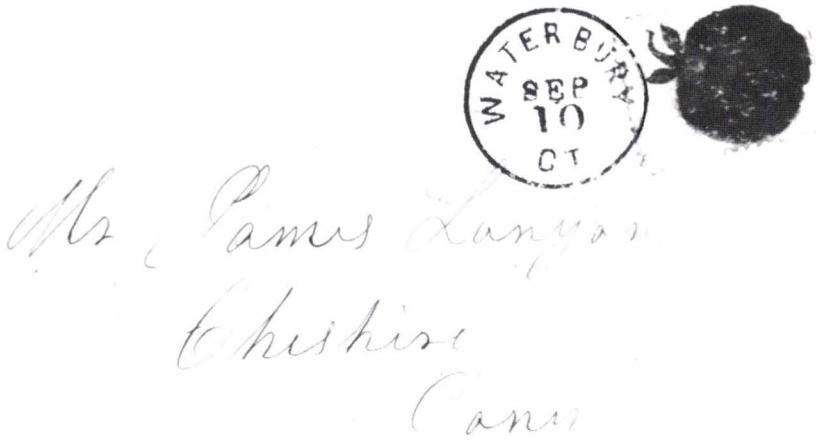 WATERBURY
SEP
10
CT
Mr James Lanyon
Cheshire
Conn